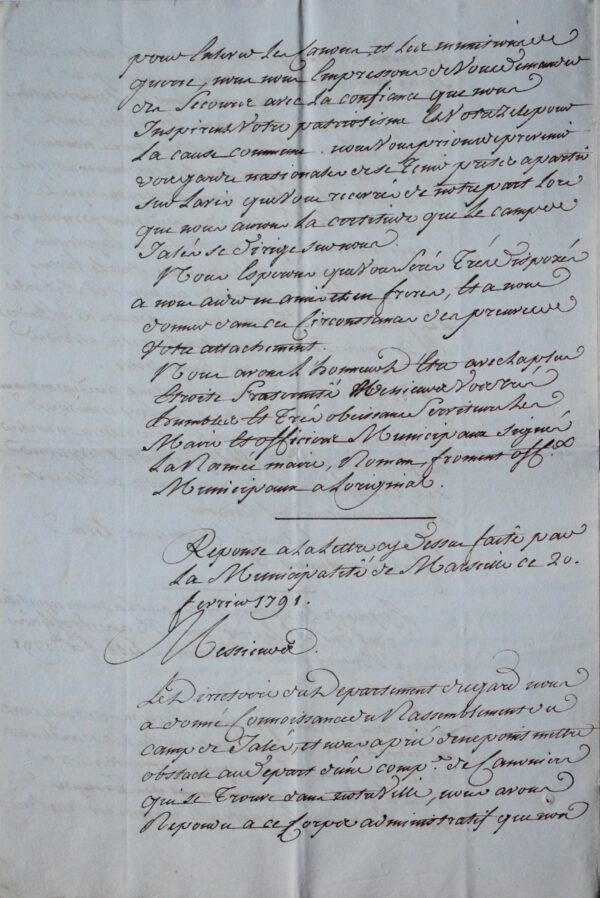 pour Enlever Les Canons, et Les munitions de
guerre, nous nous Empressons de Vous demander
des Secours avec La confiance que nous
Inspirent Votre patriotisme Et Votre Zele pour
La cause commune. nous Vous prions de prevenir
vos gardes nationales de se Tenir pretes a partir
sur L'avis que Vous recevrés de notre part Lors
que nous aurons La certitude que Le camp de
Jalés se dirige sur nous.
Nous Esperons que Vous Serés Trés disposés
a nous aider en amis et en freres, Et a nous
donner dans ces Circonstances des preuves de
Votre attachement.
Nous avons L'honneur d'Etre avec La plus
Etroite fraternité Messieurs Vos trés
humbles Et Trés obeissans Serviteurs Les
Maire Et officiers Municipaux Signés
La Ramée maire, Roman, froment off.rs
Municipaux a L'original.
Reponse a La Lettre cy dessus faite par
La Municipalité de Marseille ce 20.
fevrier 1791.
Messieurs.
Le Directoire du Departement du gard nous
a donné Connoissance du Rassemblement du
camp de Jalés, et nous a prié de ne point mettre
obstacle au départ d'une comp.e de Canoniers
qui se Trouve dans notre Ville, nous avons
Repondu a ce Corps administratif que non